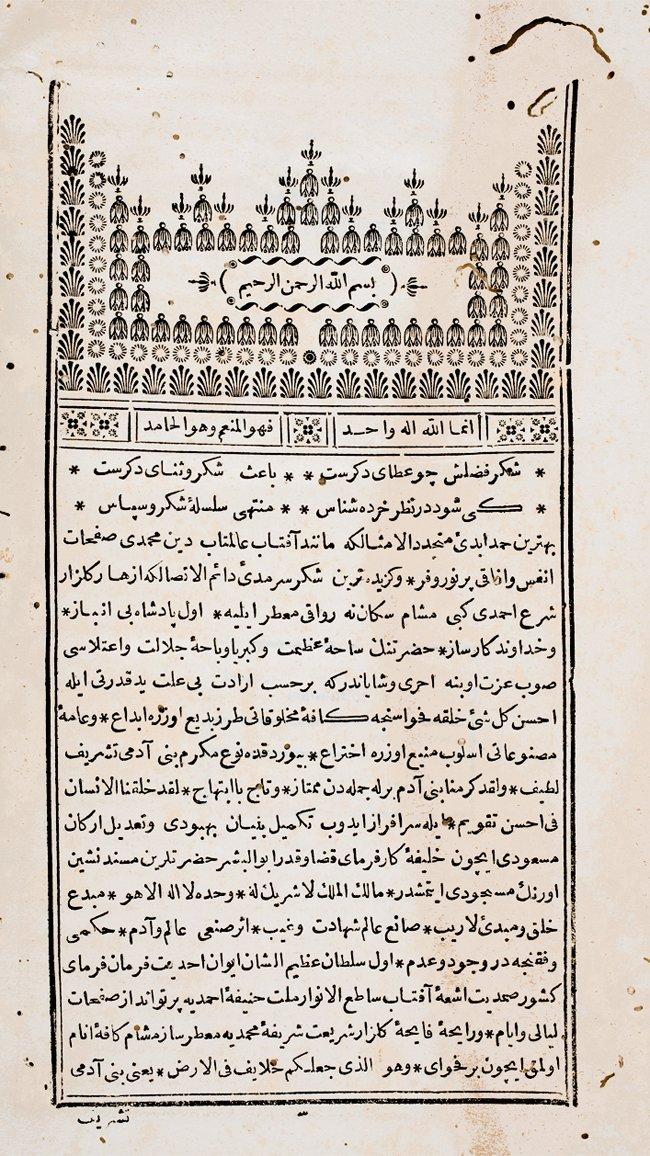 بسم الله الرحمن الرحيم
انما الله اله واحد
فهو المنعم وهو الحامد
* شكر فضلش چو عطای دكرست * * باعث شكر وثنای دكرست *
* كی شود در نظر خرده شناس * * منتهی سلسلهٔ شكر وسپاس *
بهترین حمد ابدئ متجدد الامثالكه مانند آفتاب عالمتاب دین محمدی صفحات
انفس وافاقی پرنور وفر * وكزیده ترین شكر سرمدئ دائم الاتصالكه ازهار كلزار
شرع احمدی كبی مشام سكان نه رواقی معطر ایلیه * اول پادشاه بی انباز *
وخداوند كارساز * حضرتنك ساحهٔ عظمت وكبریا وباحهٔ جلالت واعتلاسی
صوب عزت اوبنه احری وشایاندركه برحسب ارادت بی علت ید قدرتی ایله
احسن كل شئ خلقه فحواسنجه كافهٔ مخلوقاتی طرز بدیع اوزره ابداع * وعامهٔ
مصنوعاتی اسلوب منیع اوزره اختراع * بیوردقده نوع مكرم بنی آدمی تشریف
لطیف * ولقد كرمنا بنی آدم برله جمله دن ممتاز * وتاج با ابتهاج * لقد خلقنا الانسان
فی احسن تقویم * ایله سرافراز ایدوب تكمیل بنیان بهبودی وتعدیل اركان
مسعودی ایچون خلیفهٔ كارفرمای قضا وقدر ابو البشر حضرتلرین مسند نشین
اورنك مسجودی ایتمشدر * مالك الملك لا شریك له * وحده لا اله الا هو * مبدع
خلق ومبدئ لاریب * صانع عالم شهادت وغیب * اثر صنعی عالم وآدم * حكمی
وفقنجه در وجود وعدم * اول سلطان عظیم الشان ایوان احدیت فرمان فرمای
كشور صمدیت اشعهٔ آفتاب ساطع الانوار ملت حنیفهٔ احمدیه پرتو انداز صفحات
لیالی وایام * ورایحهٔ فایحهٔ كلزار شریعت شریفهٔ محمدیه معطر ساز مشام كافهٔ انام
اولمق ایچون بر فحوای * وهو الذی جعلكم خلایف فی الارض * یعنی بنی آدمی
تشریف